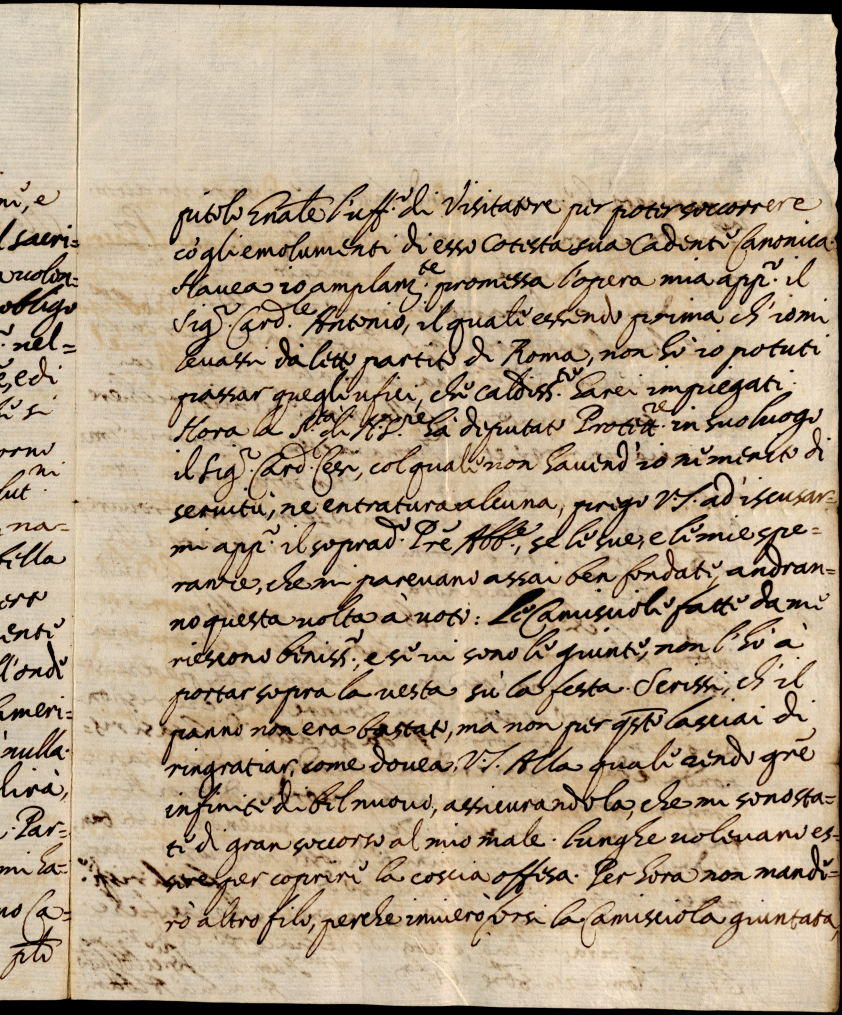 ni, e
l sacri=
a uolon=
obligo
nel=
e, edi
li si
orno
ni
lut.
, na=
tilla
ere
ente
ll'onde
ameri=
nulla.
lirà,
. Par=
mi ha=
no Ca=
pitolo Gnãle l'uff.º di Visitatore per poter soccorrere
cō gli emolumenti di esso cotesta sua cadente Canonica.
Hauea io amplam.te promessa l'opera mia app.º il
Sig.r Card.le Antonio, il quale essendo prima ch'io mi
leuassi da letto partito di Roma, non hò io potuti
passar quegli ufici, che caldiss.te harei impiegati.
Hora la S.tà di N.S.re hà deputato Protett.re in suo luogo
il Sig.r Card. Cesi, col quale non hauend'io ne merito di
seruitù, ne entratura alcuna, prego V.S. ad iscusar=
mi app.º il soprad.º Prẽ Abb.e, se le sue, e le mie spe=
ranze, che mi pareuano assai ben fondate, andran=
no questa uolta à uoto: Le Camisciole fatte da me
riescono beniss.º, e se ui sono le giunte, non l'hò à
portar sopra la uesta sù la festa. Scrissi, ch'il
panno non era bastato, ma non per q̃sto lasciai di
ringratiar, come douea, V.S. Alla quale rendo grẽ
infinite di bel nuouo, assicurandola, che mi sono sta=
te di gran soccorso al mio male. Lunghe uoleuano es=
sere per coprire la coscia offesa. Per hora non mande=
rò altro filo, perche inuierò forsi la Camisciola giuntata,